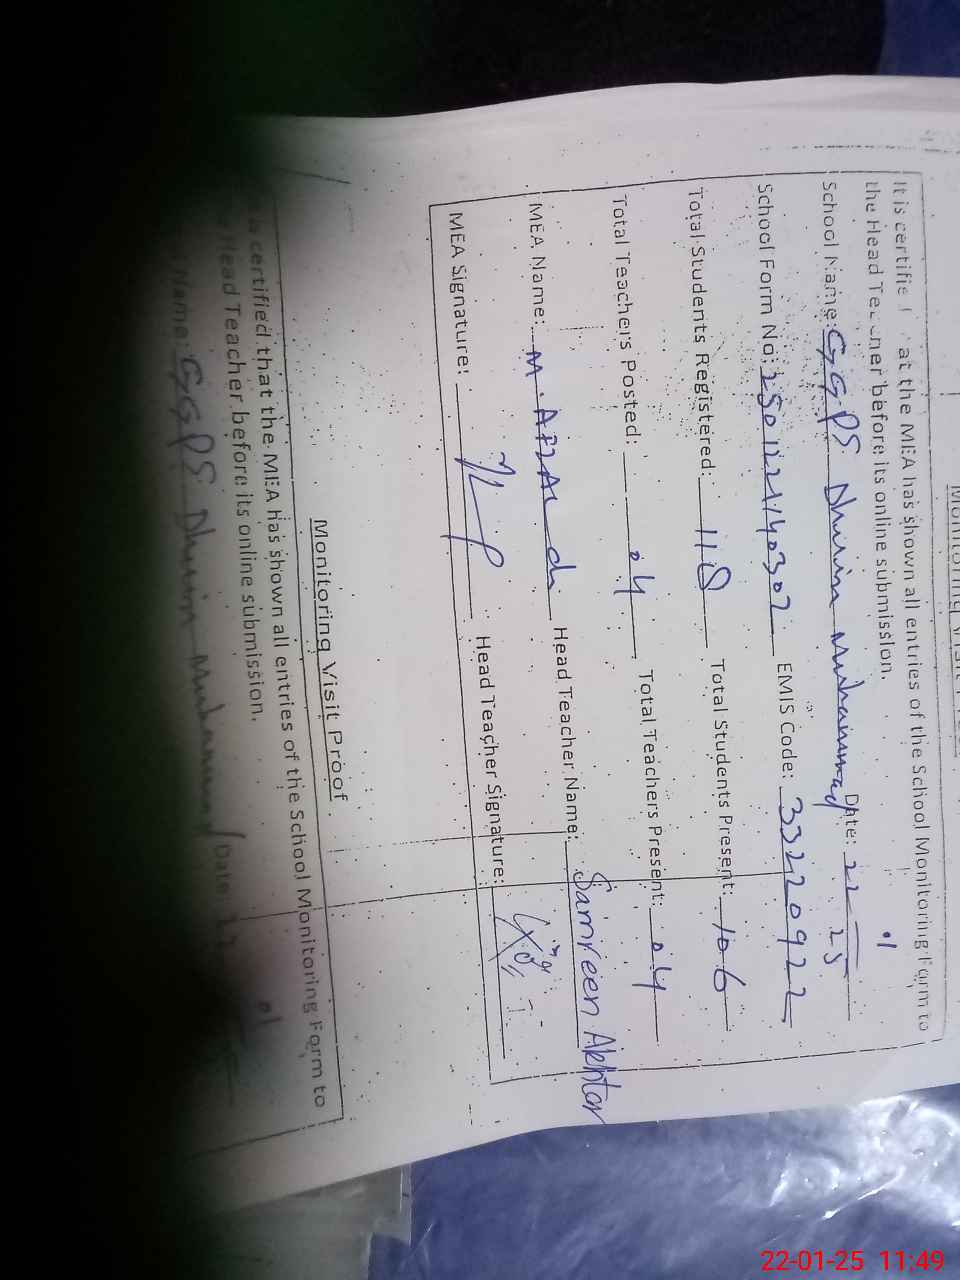 Monitoring Visit Proof
It is certifie at the MEA has shown all entries of the School Monitoring Form to
the Head Teacher before its online submission.
School Name: GGPS Dhurin Muhammad Date: 22 01 25
School Form No: EMIS Code: 33220922
Total Students Registered: 118 Total Students Present: 106
Total Teachers Posted: 04 Total Teachers Present: 04
MEA Name: M. AFZAL Head Teacher Name: Samreen Akhtar
MEA Signature: Head Teacher Signature:
Monitoring Visit Proof
is certified that the MEA has shown all entries of the School Monitoring Form to
Head Teacher before its online submission.
Name: GGPS Dhurin Muhammad Date 22 01
22-01-25 11:49